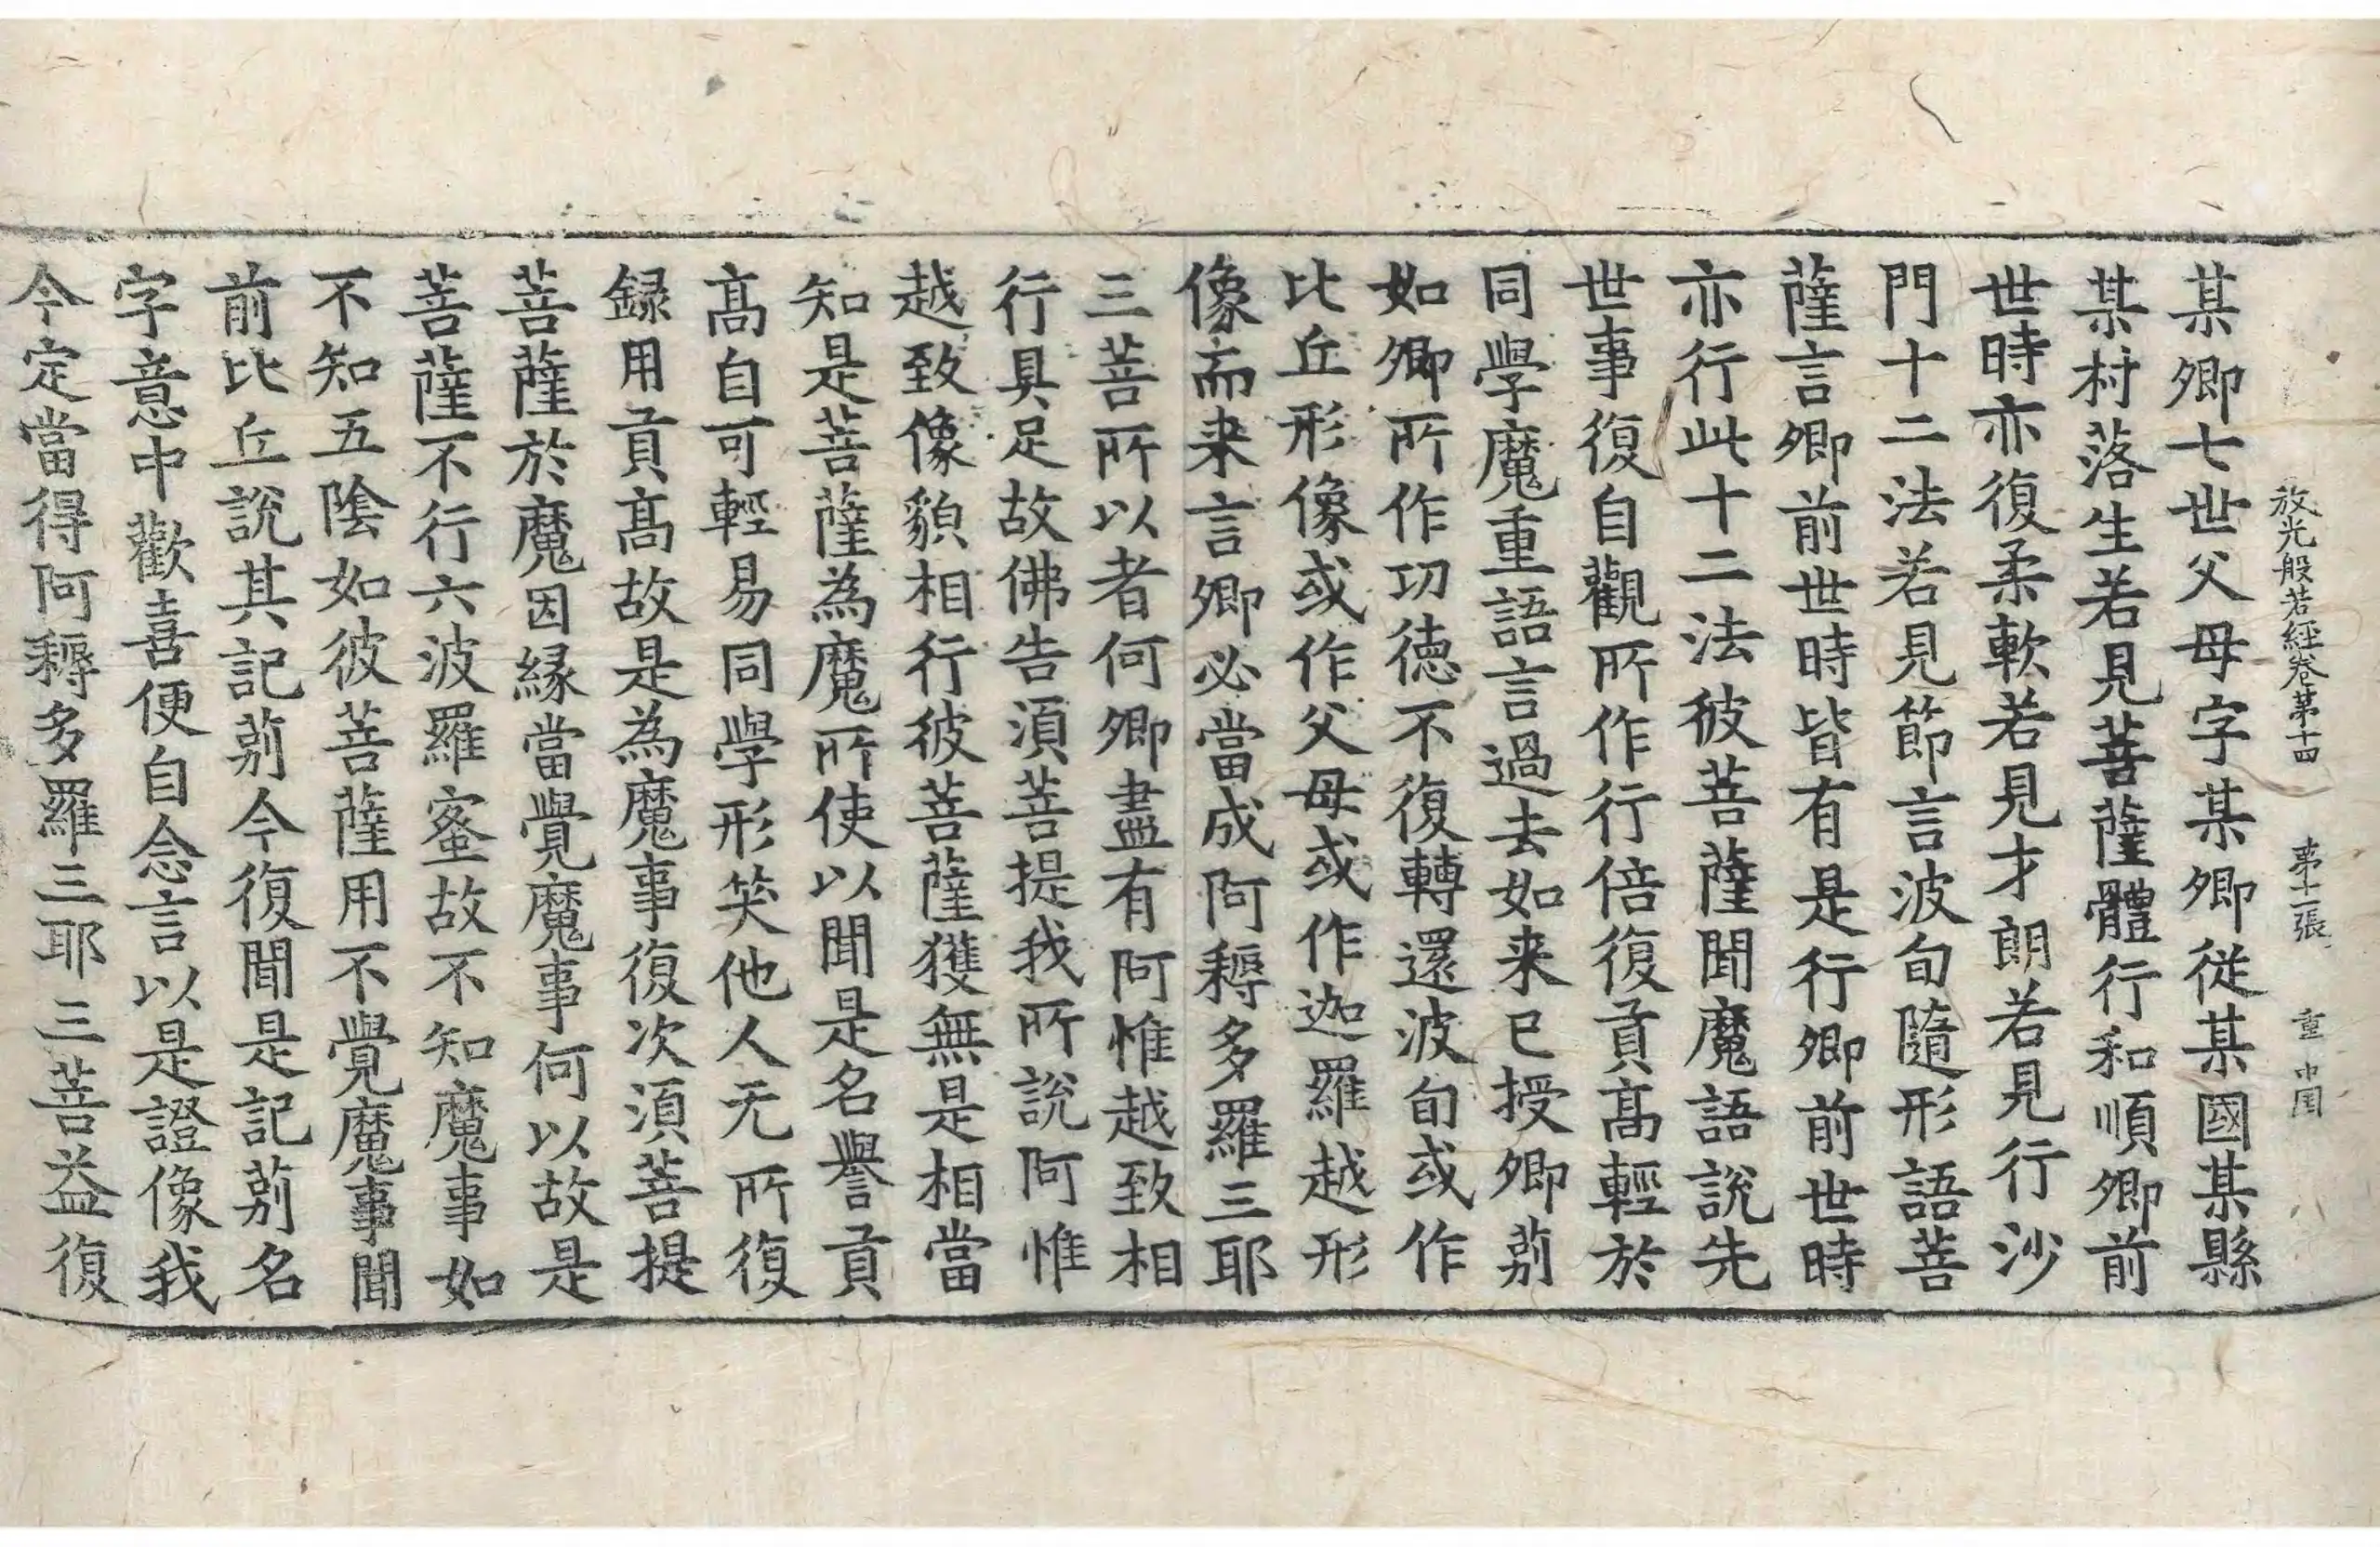 放光般若經卷第十四　第十二張　重　中固
某卿七世父母字某卿從某國某縣
某村落生若見菩薩體行和順卿前
世時亦復柔軟若見才朗若見行沙
門十二法若見節言波旬隨形語菩
薩言卿前世時皆有是行卿前世時
亦行此十二法彼菩薩聞魔語說先
世事復自觀所作行倍復貢髙輕於
同學魔重語言過去如来已授卿莂
如卿所作功德不復轉還波旬或作
比丘形像或作父母或作迦羅越形
像而来言卿必當成阿耨多羅三耶
三菩所以者何卿盡有阿惟越致相
行具足故佛告須菩提我所說阿惟
越致像貌相行彼菩薩獲無是相當
知是菩薩為魔所使以聞是名譽貢
髙自可輕易同學形笑他人无所復
録用貢髙故是為魔事復次須菩提
菩薩於魔因緣當覺魔事何以故是
菩薩不行六波羅蜜故不知魔事如
不知五陰如彼菩薩用不覺魔事聞
前比丘說其記莂今復聞是記莂名
字意中歡喜便自念言以是證像我
今定當得阿耨多羅三耶三菩益復